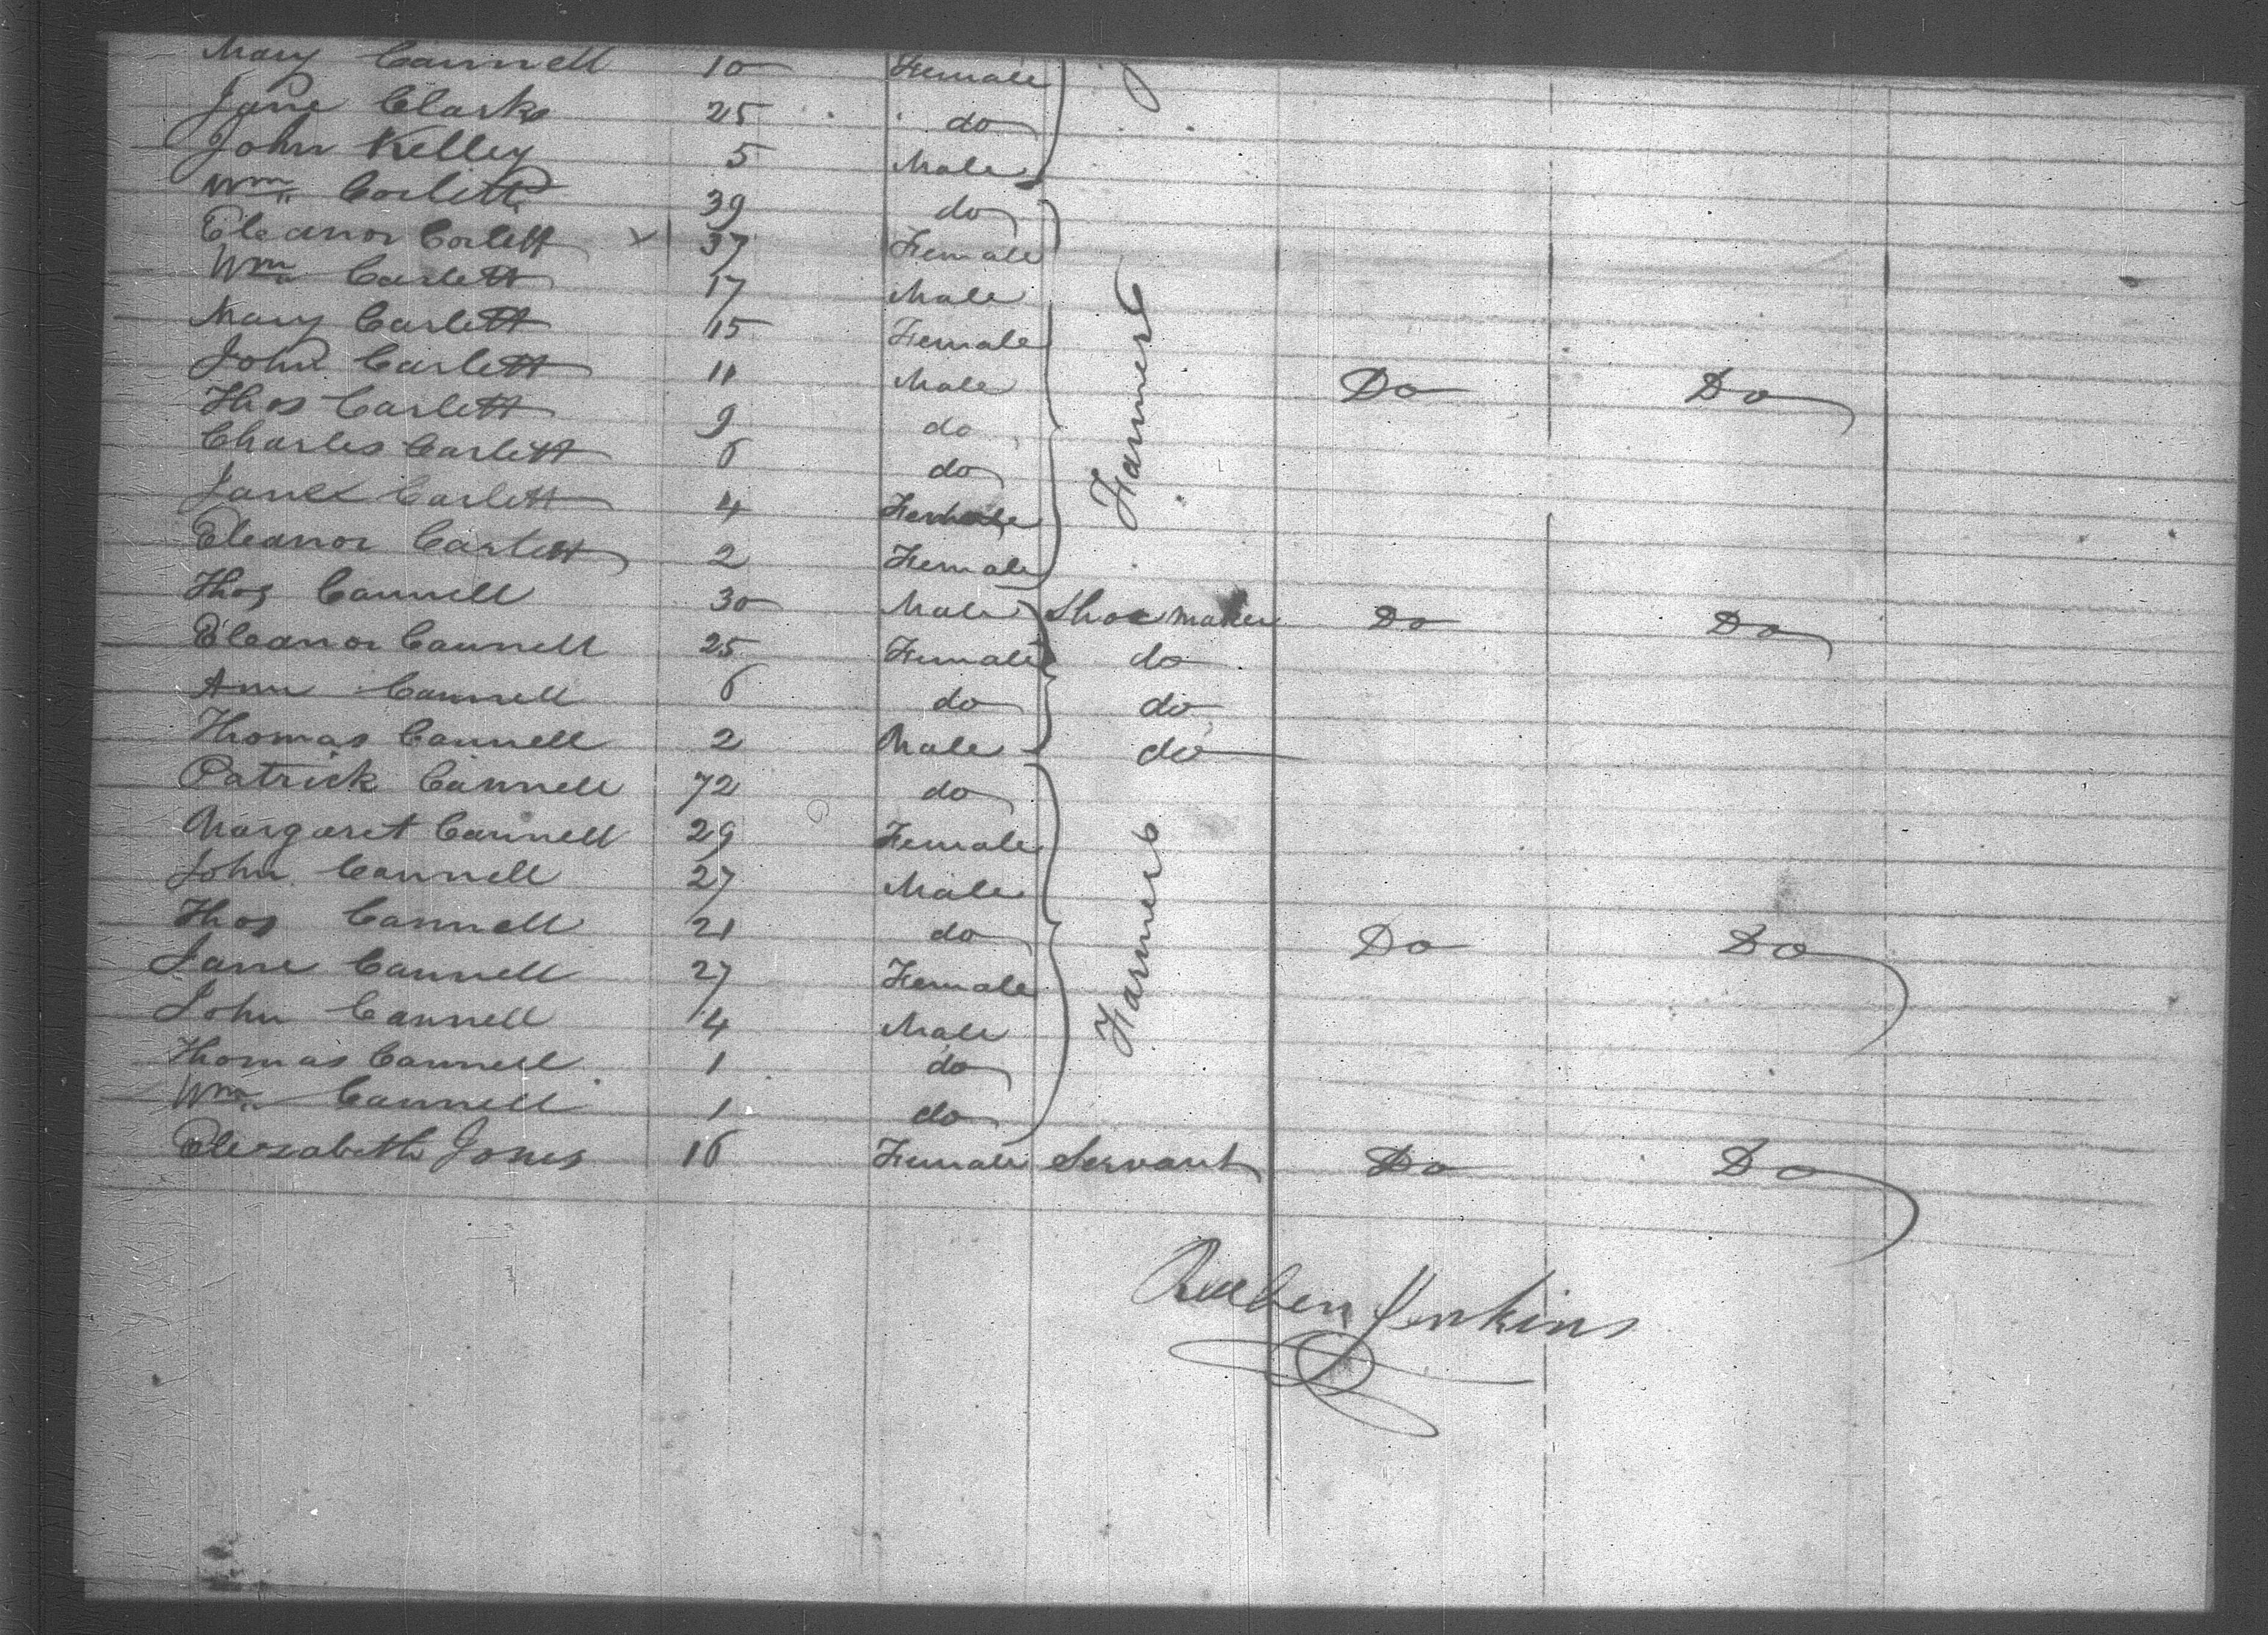 Mary Cannell 10 Female
Jane Clarke 25 do
John Kelley 5 Male
Wm Corlett 39 do
Eleanor Corlett x 37 Female
Wm Corlett 17 Male
Mary Corlett 15 Female
John Corlett 11 Male Farmers Do Do
Thos Corlett 9 do
Charles Corlett 6 do
Jane Corlett 4 Female
Eleanor Corlett 2 Female
Thos Cannell 30 Male Shoe maker Do Do
Eleanor Cannell 25 Female do
Ann Cannell 6 do do
Thomas Cannell 2 Male do
Patrick Cannell 72 do
Margaret Cannell 29 Female
John Cannell 27 Male
Thos Cannell 21 do Farmers Do Do
Jane Cannell 27 Female
John Cannell 4 Male
Thomas Cannell 1 do
Wm Cannell 1 do
Elezabeth Jones 16 Female Servant Do Do
Reuben Jenkins